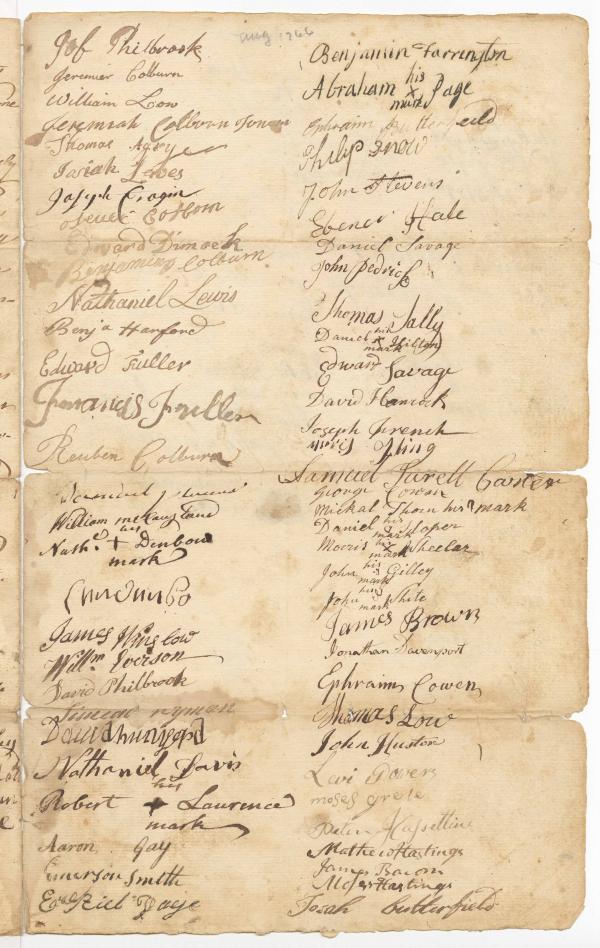 Aug 1766
Job Philbrook
Jeremier Colburn
William Low
Jeremiah Colburn Junor
Thomas Agrye
Isriah Lewes
Joseph Cragin
Colborn
Edward Dimock
Benjamin Colburn
Nathaniel Lewis
Benja Harford
Edward Fuller
Francis Fuller
Reuben Colburn
William
his
Nath. + Denbow
mark
James Winslow
Willm Everson
David Philbrook
Simeon wyman
David
Nathaniel Davis
his
Robert + Laurence
mark
Aaron Gay
Emerson Smith
Ezekiel Page
Benjamin Farrington
his
Abraham x Page
mark
Ephraim Butterfield
Philip Snow
John Stevens
Ebener Hale
Daniel Savage
John Pedrick
Thomas Jally
his
Daniel x Hilton
mark
Edward Savage
David Hancock
Joseph French
Samuel Carter
George Cowan
Mickal Thorn his mark
his
Daniel
mark
his
Morris x Wheelar
mark
his
John Gilley
mark
his
John White
mark
James Brown
Jonathan Davenport
Ephraim Cowen
Thomas Low
John Huston
Levi Powers
moses
Hassettine
Mathew Hastings
James Bacon
Moses Hastings
Butterfield